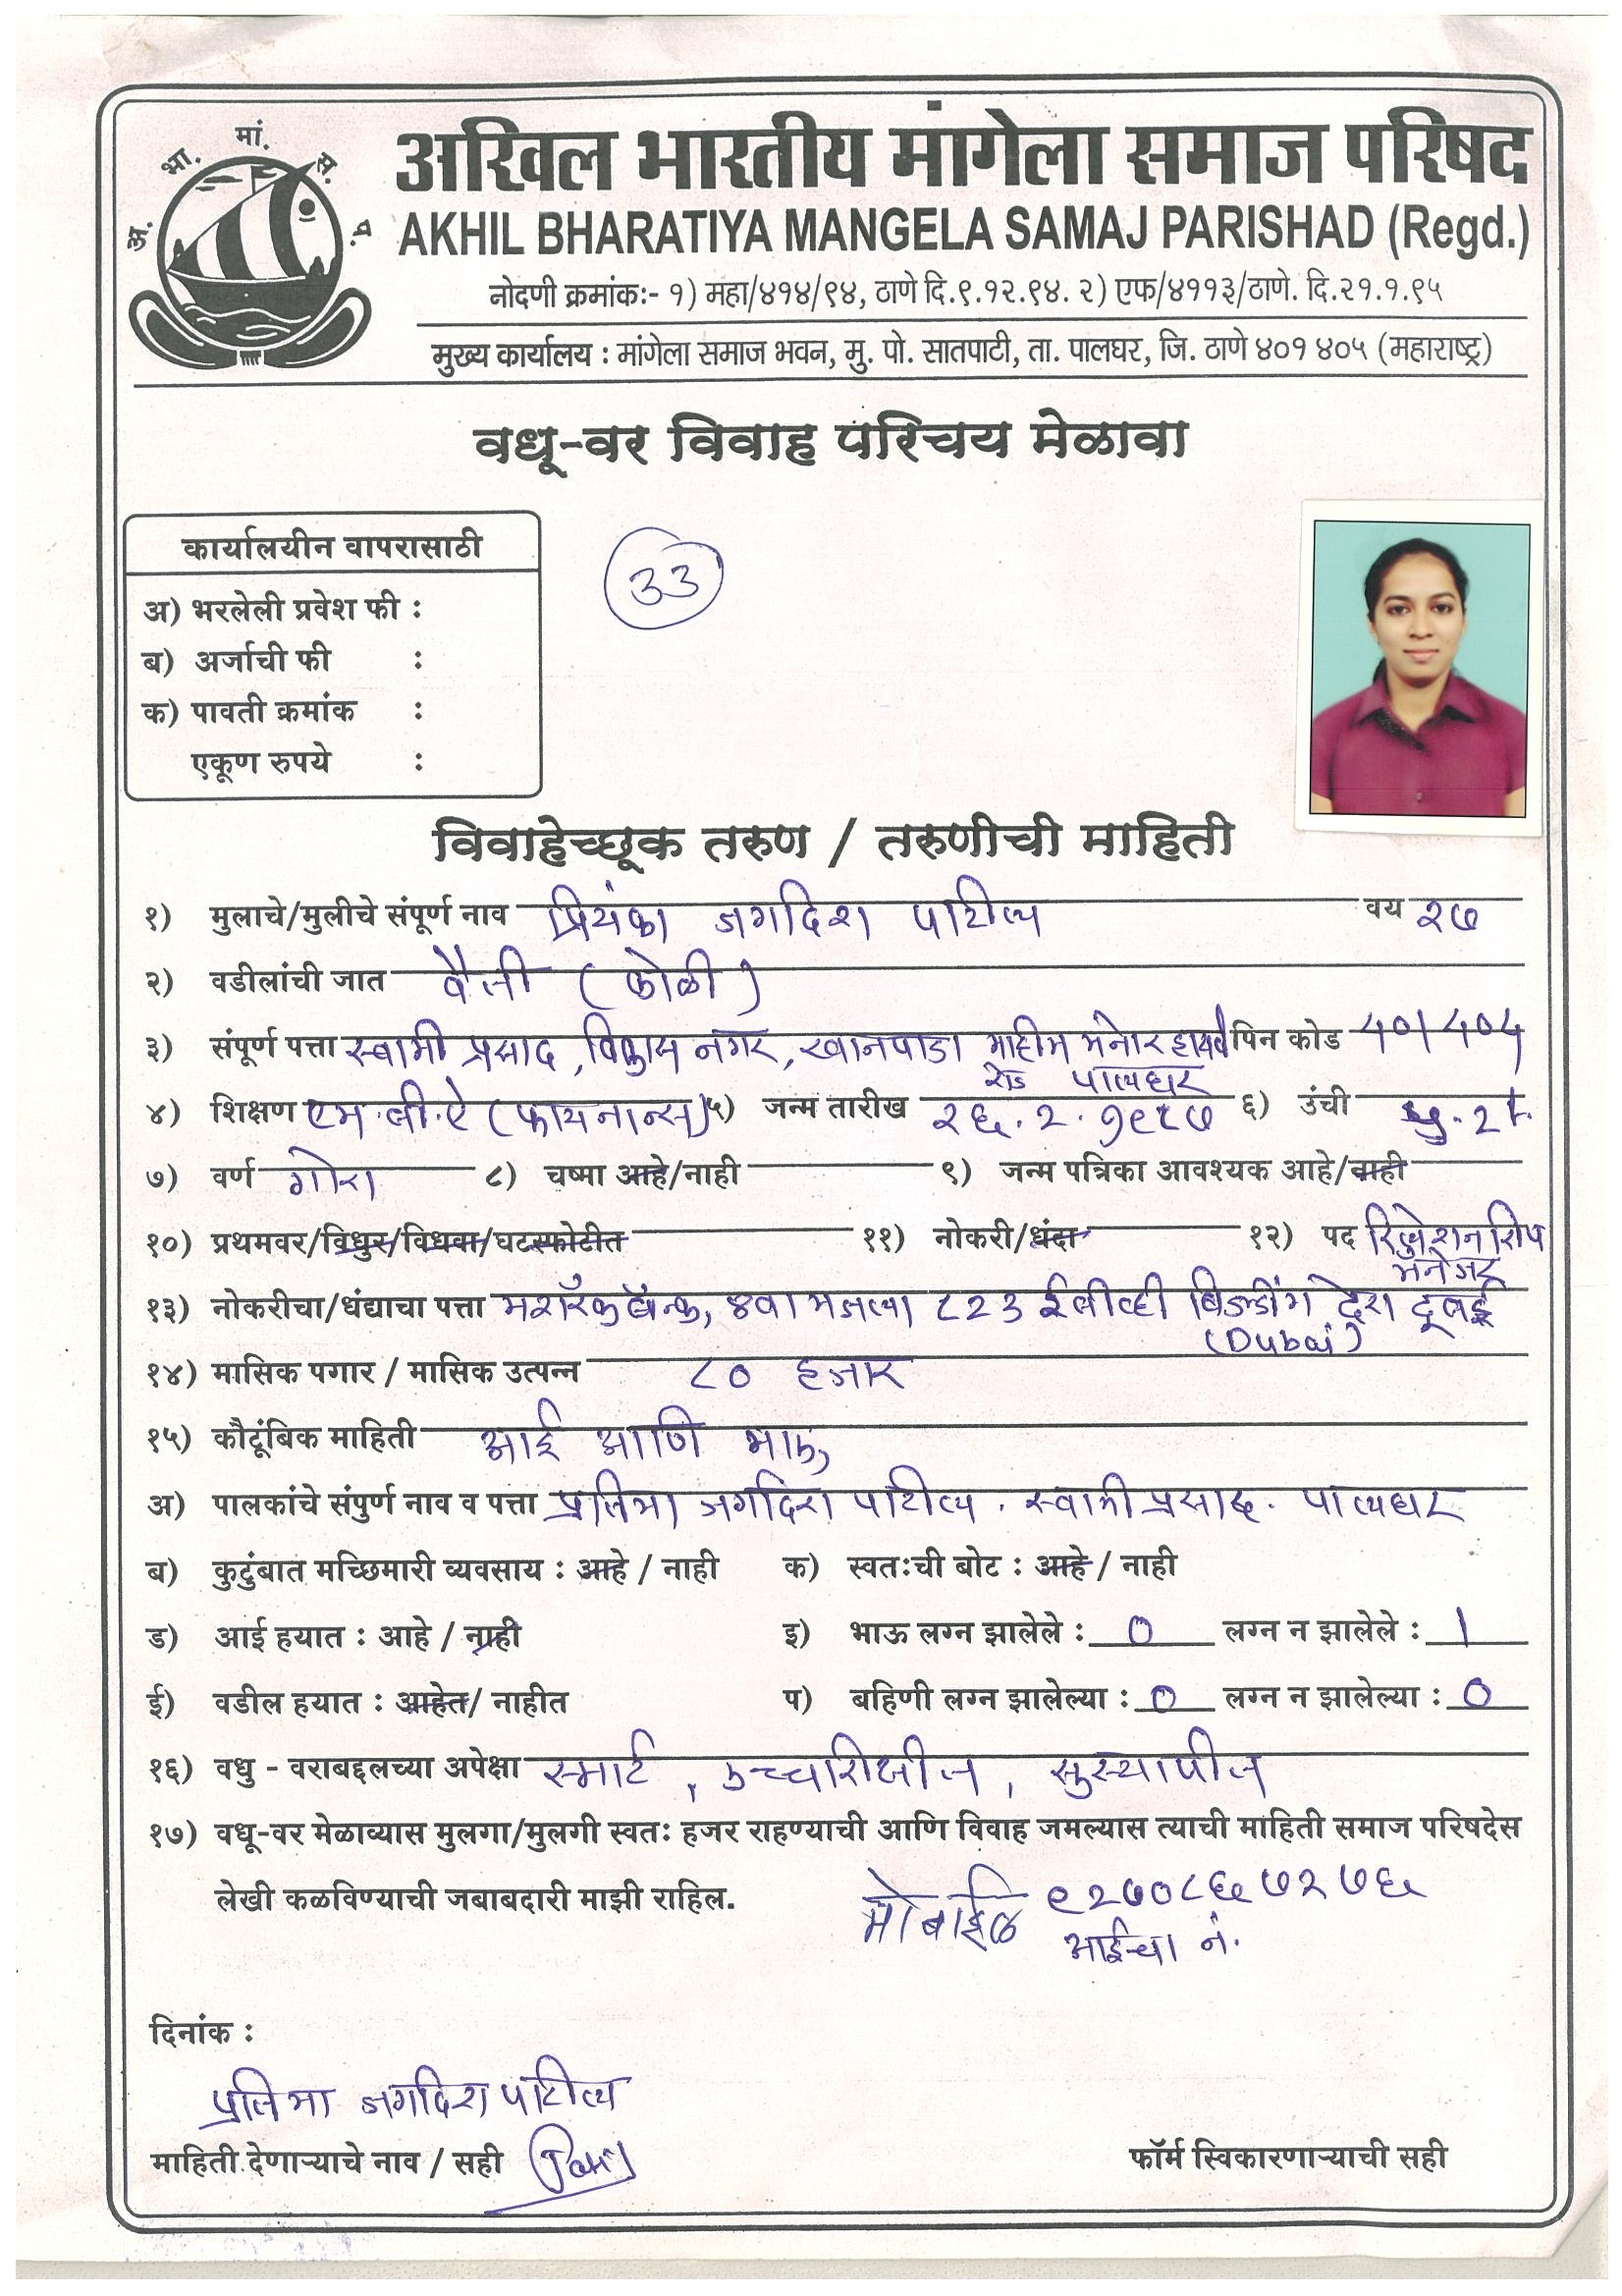 अ. भा. मां. स. प.
अखिल भारतीय मांगेला समाज परिषद
AKHIL BHARATIYA MANGELA SAMAJ PARISHAD (Regd.)
नोदणी क्रमांकः- १) महा/४१४/९४, ठाणे दि.९.१२.९४. २) एफ/४११३/ठाणे. दि.२१.१.९५
मुख्य कार्यालय : मांगेला समाज भवन, मु. पो. सातपाटी, ता. पालघर, जि. ठाणे ४०१ ४०५ (महाराष्ट्र)
वधू-वर विवाह परिचय मेळावा
कार्यालयीन वापरासाठी
33
अ) भरलेली प्रवेश फी :
ब) अर्जाची फी :
क) पावती क्रमांक :
एकूण रुपये :
विवाहेच्छूक तरुण / तरुणीची माहिती
१) मुलाचे/मुलीचे संपूर्ण नाव प्रियंका जगदिश पाटील वय २७
२) वडीलांची जात वैती (कोळी)
३) संपूर्ण पत्ता स्वामी प्रसाद, विकास नगर, खानपाडा माहीम मनोर हायवे पिन कोड 401404
रोड पालघर
४) शिक्षण एम.बी.ऐ (फायनान्स) ५) जन्म तारीख २६.२.१९८७ ६) उंची ५.2
७) वर्ण गोरा ८) चष्मा आहे/नाही ९) जन्म पत्रिका आवश्यक आहे/नाही
१०) प्रथमवर/विधुर/विधवा/घटस्फोटीत ११) नोकरी/धंदा १२) पद रिलेशनशिप
मॅनेजर
१३) नोकरीचा/धंद्याचा पत्ता मशरॅक बँन्क, ४था मजला ८२३ ईबीव्ही बिल्डींग देरा दूबई
(Dubai)
१४) मासिक पगार / मासिक उत्पन्न ८० हजार
१५) कौटूंबिक माहिती आई आणि भाऊ
अ) पालकांचे संपुर्ण नाव व पत्ता प्रतिभा जगदिश पाटील. स्वामी प्रसाद. पालघर
ब) कुटुंबात मच्छिमारी व्यवसाय : आहे / नाही क) स्वतःची बोट : आहे / नाही
ड) आई हयात : आहे / नाही इ) भाऊ लग्न झालेले : 0 लग्न न झालेले : 1
ई) वडील हयात : आहेत/ नाहीत प) बहिणी लग्न झालेल्या : 0 लग्न न झालेल्या : 0
१६) वधु - वराबद्दलच्या अपेक्षा स्मार्ट, उच्चशिक्षीत, सुस्थापीत
१७) वधू-वर मेळाव्यास मुलगा/मुलगी स्वतः हजर राहण्याची आणि विवाह जमल्यास त्याची माहिती समाज परिषदेस
लेखी कळविण्याची जबाबदारी माझी राहिल. मोबाईल ९२७०८६७२७६
आईचा नं.
दिनांक :
प्रतिभा जगदिश पाटील
माहिती देणाऱ्याचे नाव / सही फॉर्म स्विकारणाऱ्याची सही